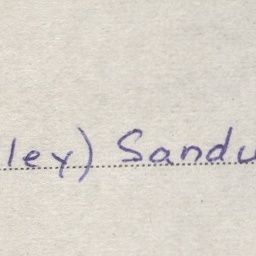 ley) Sandu